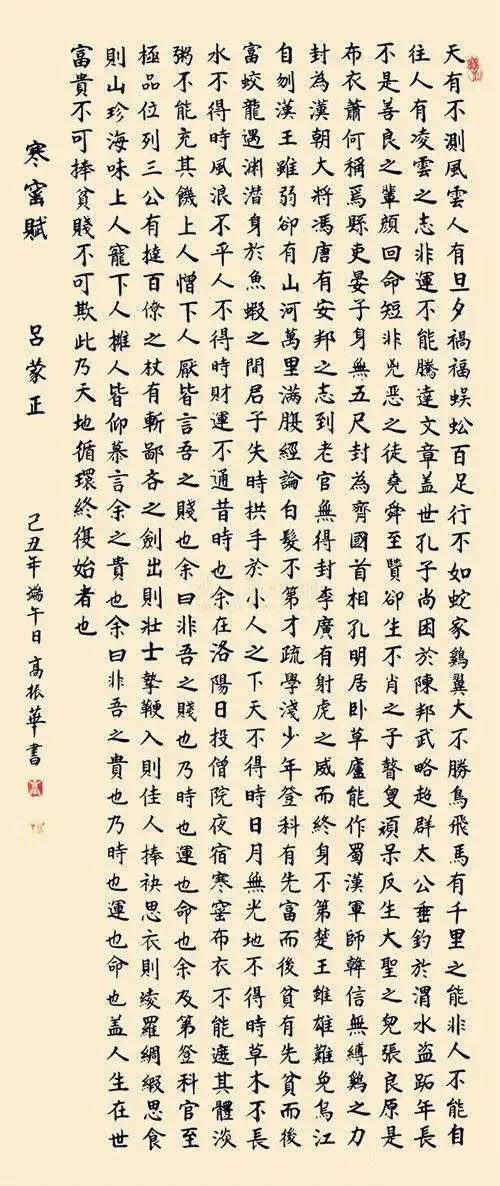 天有不測風雲人有旦夕禍福蜈蚣百足行不如蛇家鷄翼大不勝鳥飛馬有千里之能非人不能自
往人有凌雲之志非運不能騰達文章盖世孔子尚困於陳邦武略超群太公垂釣於渭水盜跖年長
不是善良之輩顔回命短非兇惡之徒堯舜至賢卻生不肖之子瞽叟頑呆反生大聖之兒張良原是
布衣蕭何稱為縣吏晏子身無五尺封為齊國首相孔明居卧草廬能作蜀漢軍師韓信無縛鷄之力
封為漢朝大將馮唐有安邦之志到老官無得封李廣有射虎之威而終身不第楚王雖雄難免烏江
自刎漢王雖弱卻有山河萬里滿腹經論白髮不第才疏學淺少年登科有先富而後貧有先貧而後
富蛟龍遇渊潛身於魚蝦之間君子失時拱手於小人之下天不得時日月無光地不得時草木不長
水不得時風浪不平人不得時財運不通昔時也余在洛陽日投僧院夜宿寒窑布衣不能遮其體淡
粥不能充其饑上人憎下人厭皆言吾之賤也余曰非吾之賤也乃時也運也命也余及第登科官至
極品位列三公有撻百僚之杖有斬鄙吝之劍出則壯士摯鞭入則佳人捧袂思衣則綾羅綢緞思食
則山珍海味上人寵下人擁人皆仰慕言余之貴也余曰非吾之貴也乃時也運也命也盖人生在世
富貴不可捧貧賤不可欺此乃天地循環終復始者也
寒窑賦 呂蒙正 己丑年端午日高振華書